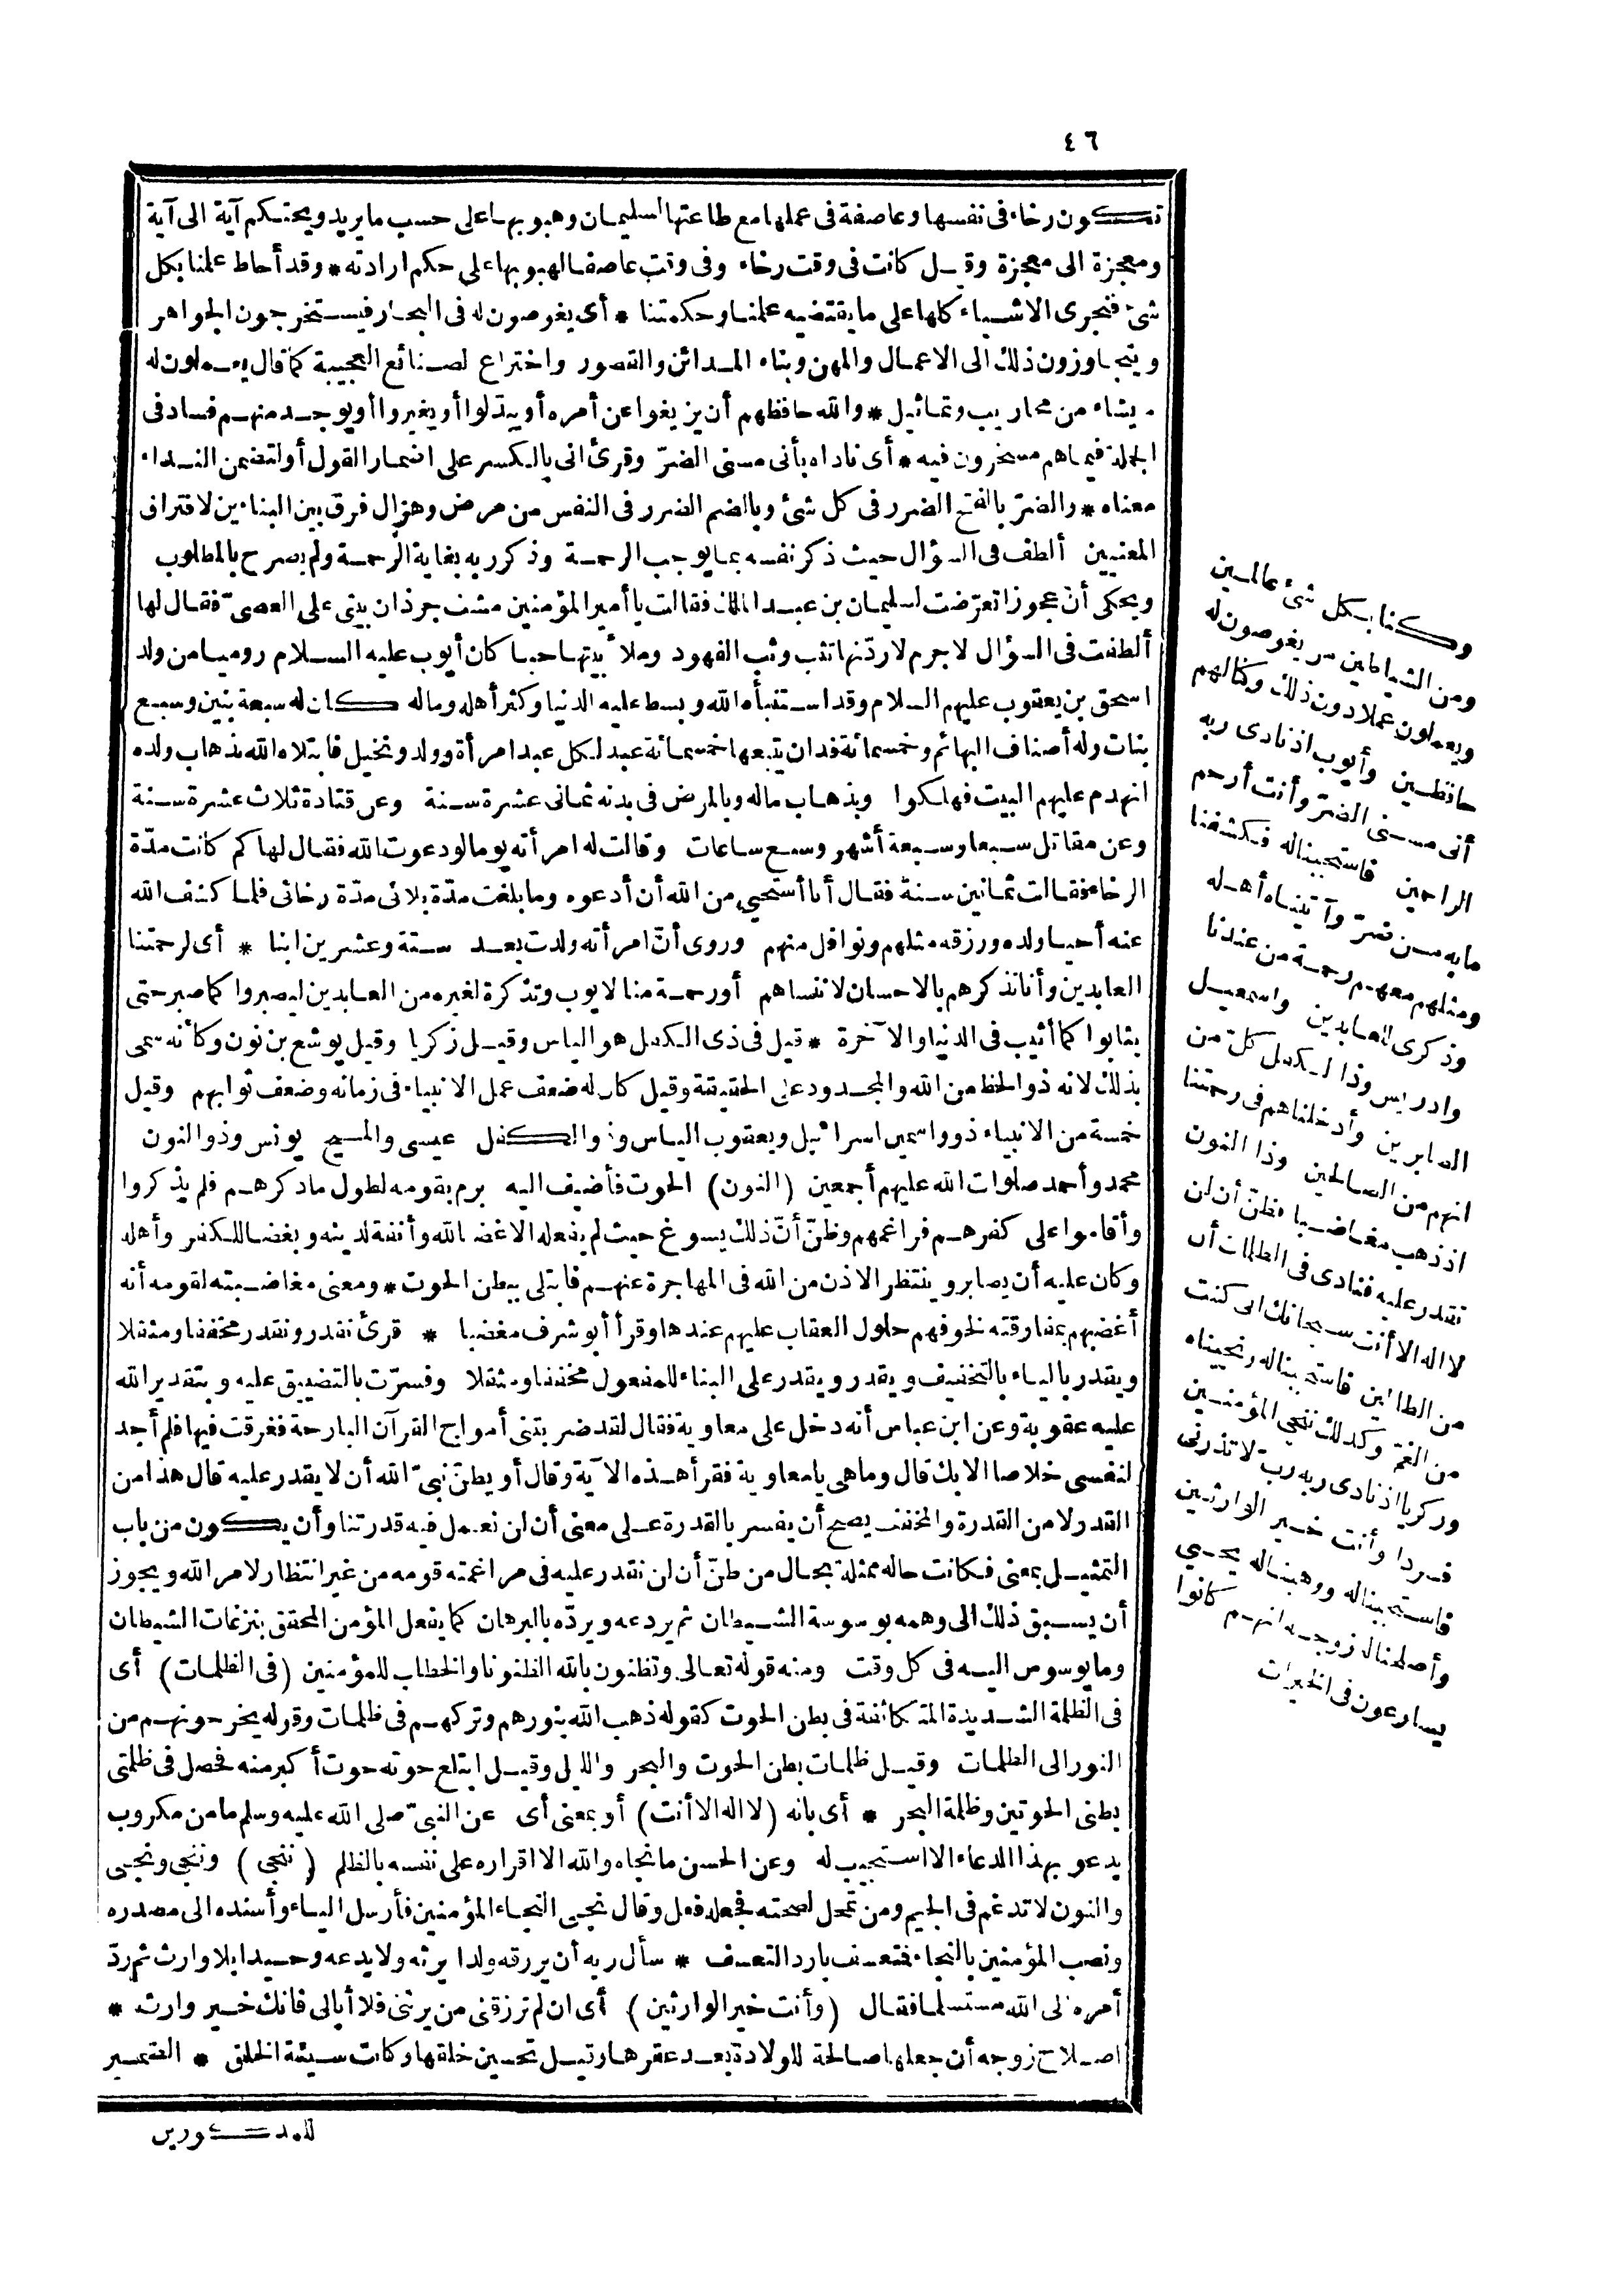 ٤٦
تكون رخاء فى نفسها وعاصفة فى عملها مع طاعتها لسليمان وهبوبها على حسب ما يريد ويحتكم آية الى آية
ومعجزة الى معجزة وقيل كانت فى وقت رخاء وفى وقت عاصفا لهبوبها على حكم ارادته * وقد أحاط علمنا بكل
شئ فنجرى الاشياء كلها على ما يقتضيه علمنا وحكمتنا * أى يغوصون له فى البحار فيستخرجون الجواهر
ويتجاوزون ذلك الى الاعمال والمهن وبناء المدائن والقصور واختراع لصنائع العجيبة كما قال يعملون له
ما يشاء من محاريب وتماثيل * والله حافظهم أن يزيغوا عن أمره أو يبدّلوا أو يغيروا أو يوجد منهم فساد فى
الجملة فيما هم مسخرون فيه * أى ناداه بأنى مسنى الضرّ وقرئ انى بالكسر على اضمار القول أو لتضمن النداء
معناه * والضرّ بالفتح الضرر فى كل شئ وبالضم الضرر فى النفس من مرض وهزال فرق بين البناءين لافتراق
المعنيين ألطف فى السؤال حيث ذكر نفسه بما يوجب الرحمة وذكر ربه بغاية الرحمة ولم يصرح بالمطلوب
ويحكى أنّ عجوزا تعرّضت لسليمان بن عبد الملك فقالت يا أمير المؤمنين مشت جرذان بيتى على العصىّ فقال لها
ألطفت فى السؤال لا جرم لاردّنها تثب وثب الفهود وملأ بيتها حبا كان أيوب عليه السلام روميا من ولد
اسحق بن يعقوب عليهم السلام وقد استنبأه الله وبسط عليه الدنيا وكثر أهله وماله كان له سبعة بنين وسبع
بنات وله أصناف البهائم وخمسمائة فدان يتبعها خمسمائة عبد لكل عبد امرأة وولد ونخيل فابتلاه الله بذهاب ولده
انهدم عليهم البيت فهلكوا وبذهاب ماله وبالمرض فى بدنه ثمانى عشرة سنة وعن قتادة ثلاث عشرة سنة
وعن مقاتل سبعا وسبعة أشهر وسبع ساعات وقالت له امرأته يوما لو دعوت الله فقال لها كم كانت مدّة
الرخاء فقالت ثمانين سنة فقال أنا أستحيى من الله أن أدعوه وما بلغت مدّة بلائى مدّة رخائى فلما كشف الله
عنه أحيا ولده ورزقه مثلهم ونوافل منهم وروى أنّ امرأته ولدت بعد ستة وعشرين ابنا * أى لرحمتنا
العابدين وأنا نذكرهم بالاحسان لا ننساهم أو رحمة منا لايوب وتذكرة لغيره من العابدين ليصبروا كما صبر حتى
يثابوا كما أثيب فى الدنيا والآخرة * قيل فى ذى الكفل هو الياس وقيل زكريا وقيل يوشع بن نون وكأنه سمى
بذلك لانه ذو الحظ من الله والمجدود على الحقيقة وقيل كان له ضعف عمل الانبياء فى زمانه وضعف ثوابهم وقيل
خمسة من الانبياء ذوو اسمين اسرائيل ويعقوب الياس وذو الكفل عيسى والمسيح يونس وذو النون
محمد وأحمد صلوات الله عليهم أجمعين (النون) الحوت فأضيف اليه برم بقومه لطول ما ذكرهم فلم يذكروا
وأقاموا على كفرهم فراغمهم وظنّ أنّ ذلك يسوغ حيث لم يفعله الا غضبا لله وأنفة لدينه وبغضا للكفر وأهله
وكان عليه أن يصابر وينتظر الاذن من الله فى المهاجرة عنهم فابتلى ببطن الحوت * ومعنى مغاضبته لقومه أنه
أغضبهم بمفارقته لخوفهم حلول العقاب عليهم عندها وقرأ أبو شرف مغضبا * قرئ نقدر ونقدر مخففا ومثقلا
ويقدر بالياء بالتخفيف ويقدر ويقدر على البناء للمفعول مخففا ومثقلا وفسرت بالتضييق عليه وبتقدير الله
عليه عقوبة وعن ابن عباس أنه دخل على معاوية فقال لقد ضربتنى أمواج القرآن البارحة فغرقت فيها فلم أجد
لنفسى خلاصا الا بك قال وما هى يا معاوية فقرأ هذه الآية وقال أو يظنّ نبىّ الله أن لا يقدر عليه قال هذا من
القدر لا من القدرة والمخفف يصح أن يفسر بالقدرة على معنى أن لن نعمل فيه قدرتنا وأن يكون من باب
التمثيل بمعنى فكانت حاله ممثلة بحال من ظنّ أن لن نقدر عليه فى مراغمته قومه من غير انتظار لامر الله ويجوز
أن يسبق ذلك الى وهمه بوسوسة الشيطان ثم يردعه ويردّه بالبرهان كما يفعل المؤمن المحقق بنزغات الشيطان
وما يوسوس اليه فى كل وقت ومنه قوله تعالى وتظنون بالله الظنونا والخطاب للمؤمنين (فى الظلمات) أى
فى الظلمة الشديدة المتكاثفة فى بطن الحوت كقوله ذهب الله بنورهم وتركهم فى ظلمات وقوله يخرجونهم من
النور الى الظلمات وقيل ظلمات بطن الحوت والبحر والليل وقيل ابتلع حوته حوت أكبر منه فحصل فى ظلمتى
بطنى الحوتين وظلمة البحر * أى بانه (لا اله الا أنت) أو بمعنى أى عن النبىّ صلى الله عليه وسلم ما من مكروب
يدعو بهذا الدعاء الا استجيب له وعن الحسن ما نجاه والله الا اقراره على نفسه بالظلم (ننجى) وننجى ونجى
والنون لا تدغم فى الجيم ومن تمحل لصحته فجعله فعل وقال نجى النجاء المؤمنين فأرسل الياء وأسنده الى مصدره
ونصب المؤمنين بالنجاء فتعسف بارد التعسف * سأل ربه أن يرزقه ولدا يرثه ولا يدعه وحيدا بلا وارث ثم ردّ
أمره الى الله مستسلما فقال (وأنت خير الوارثين) أى ان لم ترزقنى من يرثنى فلا أبالى فانك خير وارث *
اصلاح زوجه أن جعلها صالحة للولادة بعد عقرها وقيل تحسين خلقها وكانت سيئة الخلق * الضمير
للمذكورين
وكنا بكل شئ عالمين
ومن الشياطين من يغوصون له
ويعملون عملا دون ذلك وكنا لهم
حافظين وأيوب اذ نادى ربه
أنى مسنى الضرّ وأنت أرحم
الراحمين فاستجبنا له فكشفنا
ما به من ضرّ وآتيناه أهله
ومثلهم معهم رحمة من عندنا
وذكرى للعابدين واسمعيل
وادريس وذا الكفل كلّ من
الصابرين وأدخلناهم فى رحمتنا
انهم من الصالحين وذا النون
اذ ذهب مغاضبا فظنّ أن لن
نقدر عليه فنادى فى الظلمات أن
لا اله الا أنت سبحانك انى كنت
من الظالمين فاستجبنا له ونجيناه
من الغمّ وكذلك ننجى المؤمنين
وزكريا اذ نادى ربه ربّ لا تذرنى
فردا وأنت خير الوارثين
فاستجبنا له ووهبنا له يحيى
وأصلحنا له زوجه انهم كانوا
يسارعون فى الخيرات